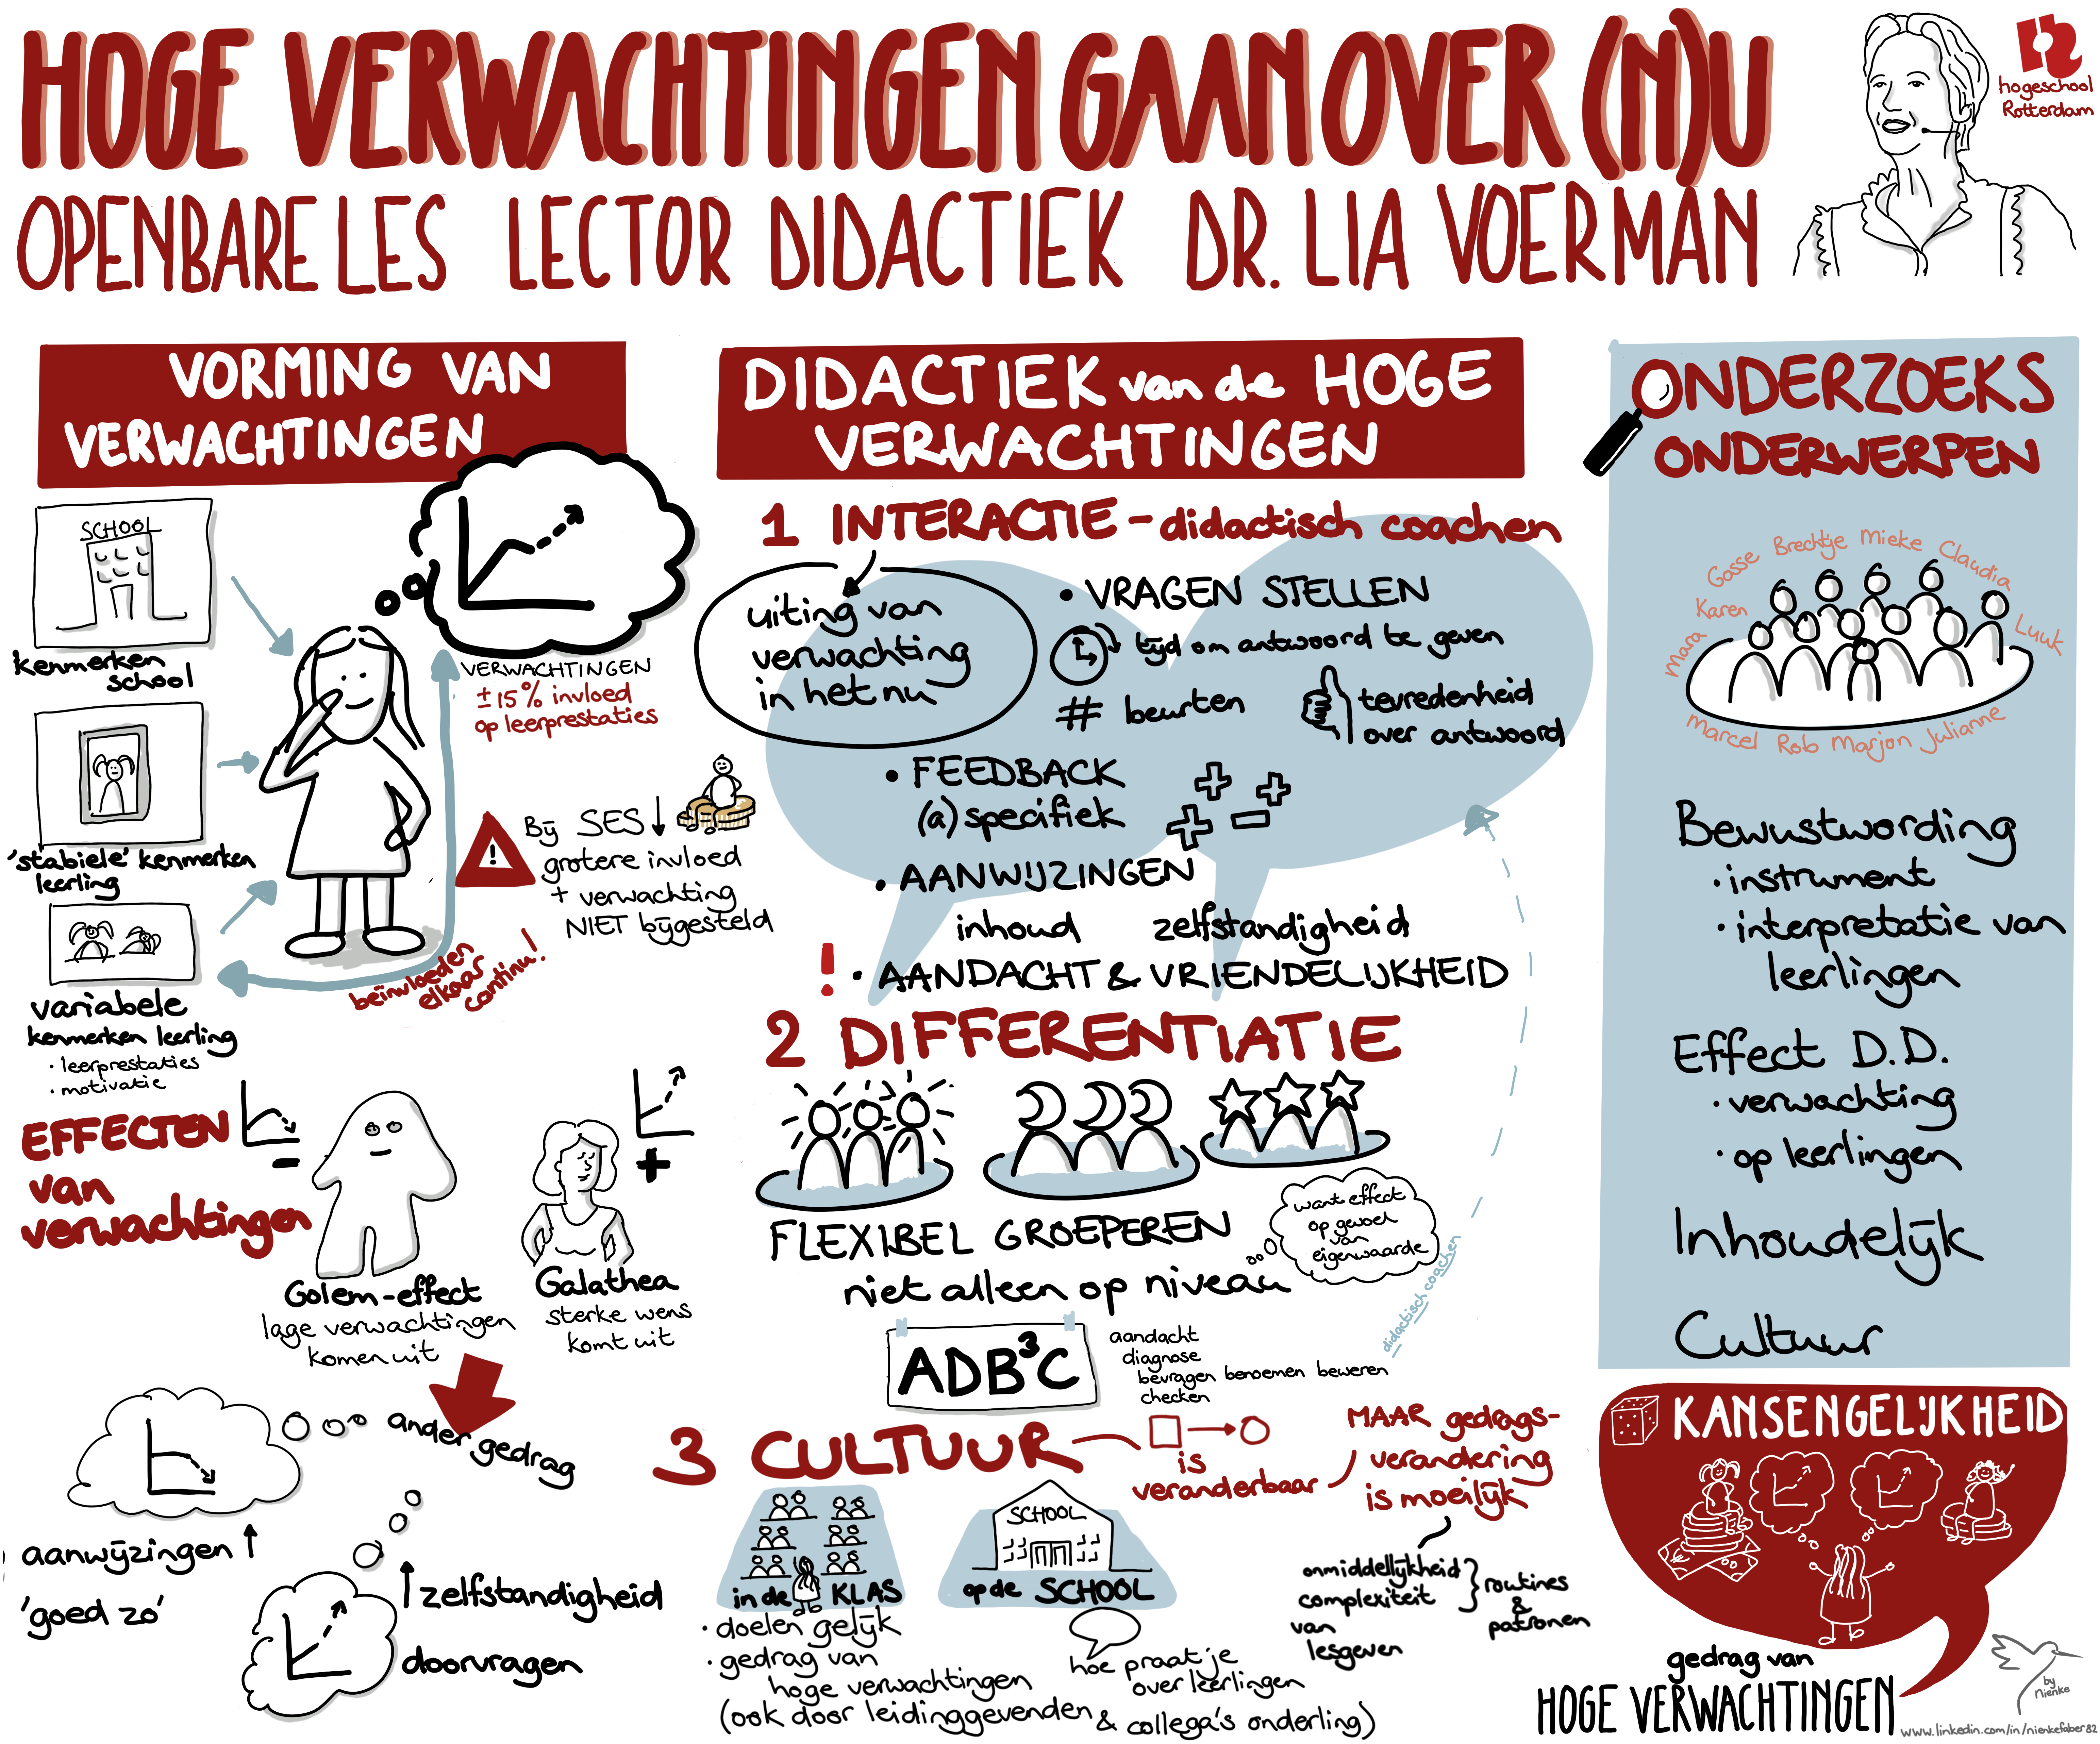 HOGE VERWACHTINGEN GAAN OVER (N)U
OPENBARE LES LECTOR DIDACTIEK DR. LIA VOERMAN
hogeschool
Rotterdam
VORMING VAN
VERWACHTINGEN
SCHOOL
kenmerken
school
'stabiele' kenmerken
leerling
variabele
kenmerken leerling
· leerprestaties
· motivatie
VERWACHTINGEN
± 15% invloed
op leerprestaties
!
Bij SES ↓
grotere invloed
+ verwachting
NIET bijgesteld
beïnvloeden
elkaar
continu!
EFFECTEN
van
verwachtingen
-
+
Golem-effect
lage verwachtingen
komen uit
Galathea
sterke wens
komt uit
ander gedrag
aanwijzingen ↑
'goed zo'
↑ zelfstandigheid
doorvragen
DIDACTIEK van de HOGE
VERWACHTINGEN
1 INTERACTIE - didactisch coachen
uiting van
verwachting
in het nu
• VRAGEN STELLEN
tijd om antwoord te geven
# beurten
tevredenheid
over antwoord
• FEEDBACK
(a)specifiek
• AANWIJZINGEN
inhoud zelfstandigheid
! • AANDACHT & VRIENDELIJKHEID
2 DIFFERENTIATIE
FLEXIBEL GROEPEREN
niet alleen op niveau
want effect
op gevoel
van
eigenwaarde
didactisch coachen
ADB³C
aandacht
diagnose
bevragen benoemen beweren
checken
3 CULTUUR
is
veranderbaar
MAAR gedrags-
verandering
is moeilijk
onmiddellijkheid
complexiteit
van
lesgeven
routines
&
patronen
in de KLAS
· doelen gelijk
· gedrag van
hoge verwachtingen
(ook door leidinggevenden & collega's onderling)
SCHOOL
op de SCHOOL
hoe praat je
over leerlingen
ONDERZOEKS
ONDERWERPEN
Mara Karen Gosse Brechtje Mieke Claudia Luuk
Marcel Rob Marjon Julianne
Bewustwording
· instrument
· interpretatie van
leerlingen
Effect D.D.
· verwachting
· op leerlingen
Inhoudelijk
Cultuur
KANSENGELIJKHEID
gedrag van
HOGE VERWACHTINGEN
by
Nienke
www.linkedin.com/in/nienkefaber82